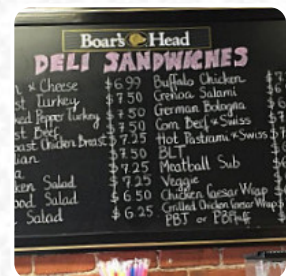 Boar's Head
DELI SANDWICHES
& Cheese $6.99 Buffalo Chicken
Turkey $7.50 Genoa Salami
Pepper Turkey $7.50 German Bologna
Beef $7.50 Corn Beef & Swiss
Chicken Breast $7.25 Hot Pastrami & Swiss
$7.50 BLT
$7.25 Meatball Sub
Salad $7.25 Veggie
Salad $6.50 Chicken Caesar Wrap
Salad $6.25 Grilled Chicken Caesar Wrap
PBJ or